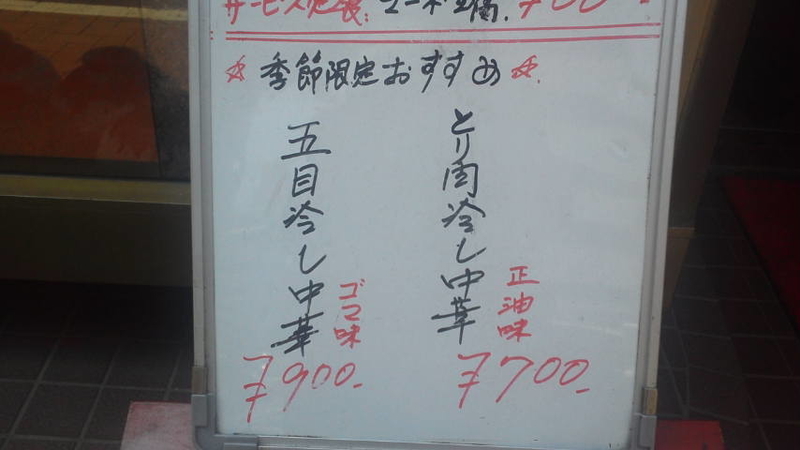 サービス定食:マーボ豆腐.¥700-
☆季節限定おすすめ☆.
とり肉冷し中華
正油味
¥700.-
五目冷し中華
ゴマ味
¥900.-